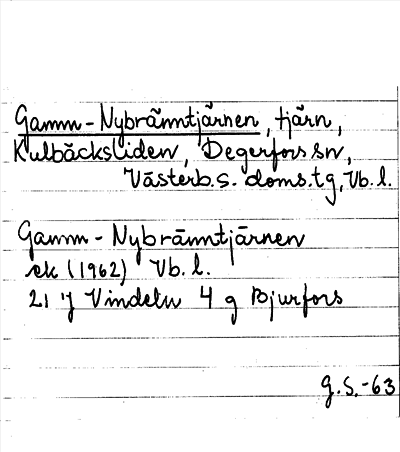 Gamm-Nybränntjärnen, tjärn,
Kulbäcksliden, Degerfors sn,
Västerb.s. doms.tg, Vb. l.
Gamm-Nybränntjärnen
ek (1962) Vb. l.
21 J Vindeln 4 g Bjurfors
G.S.-63